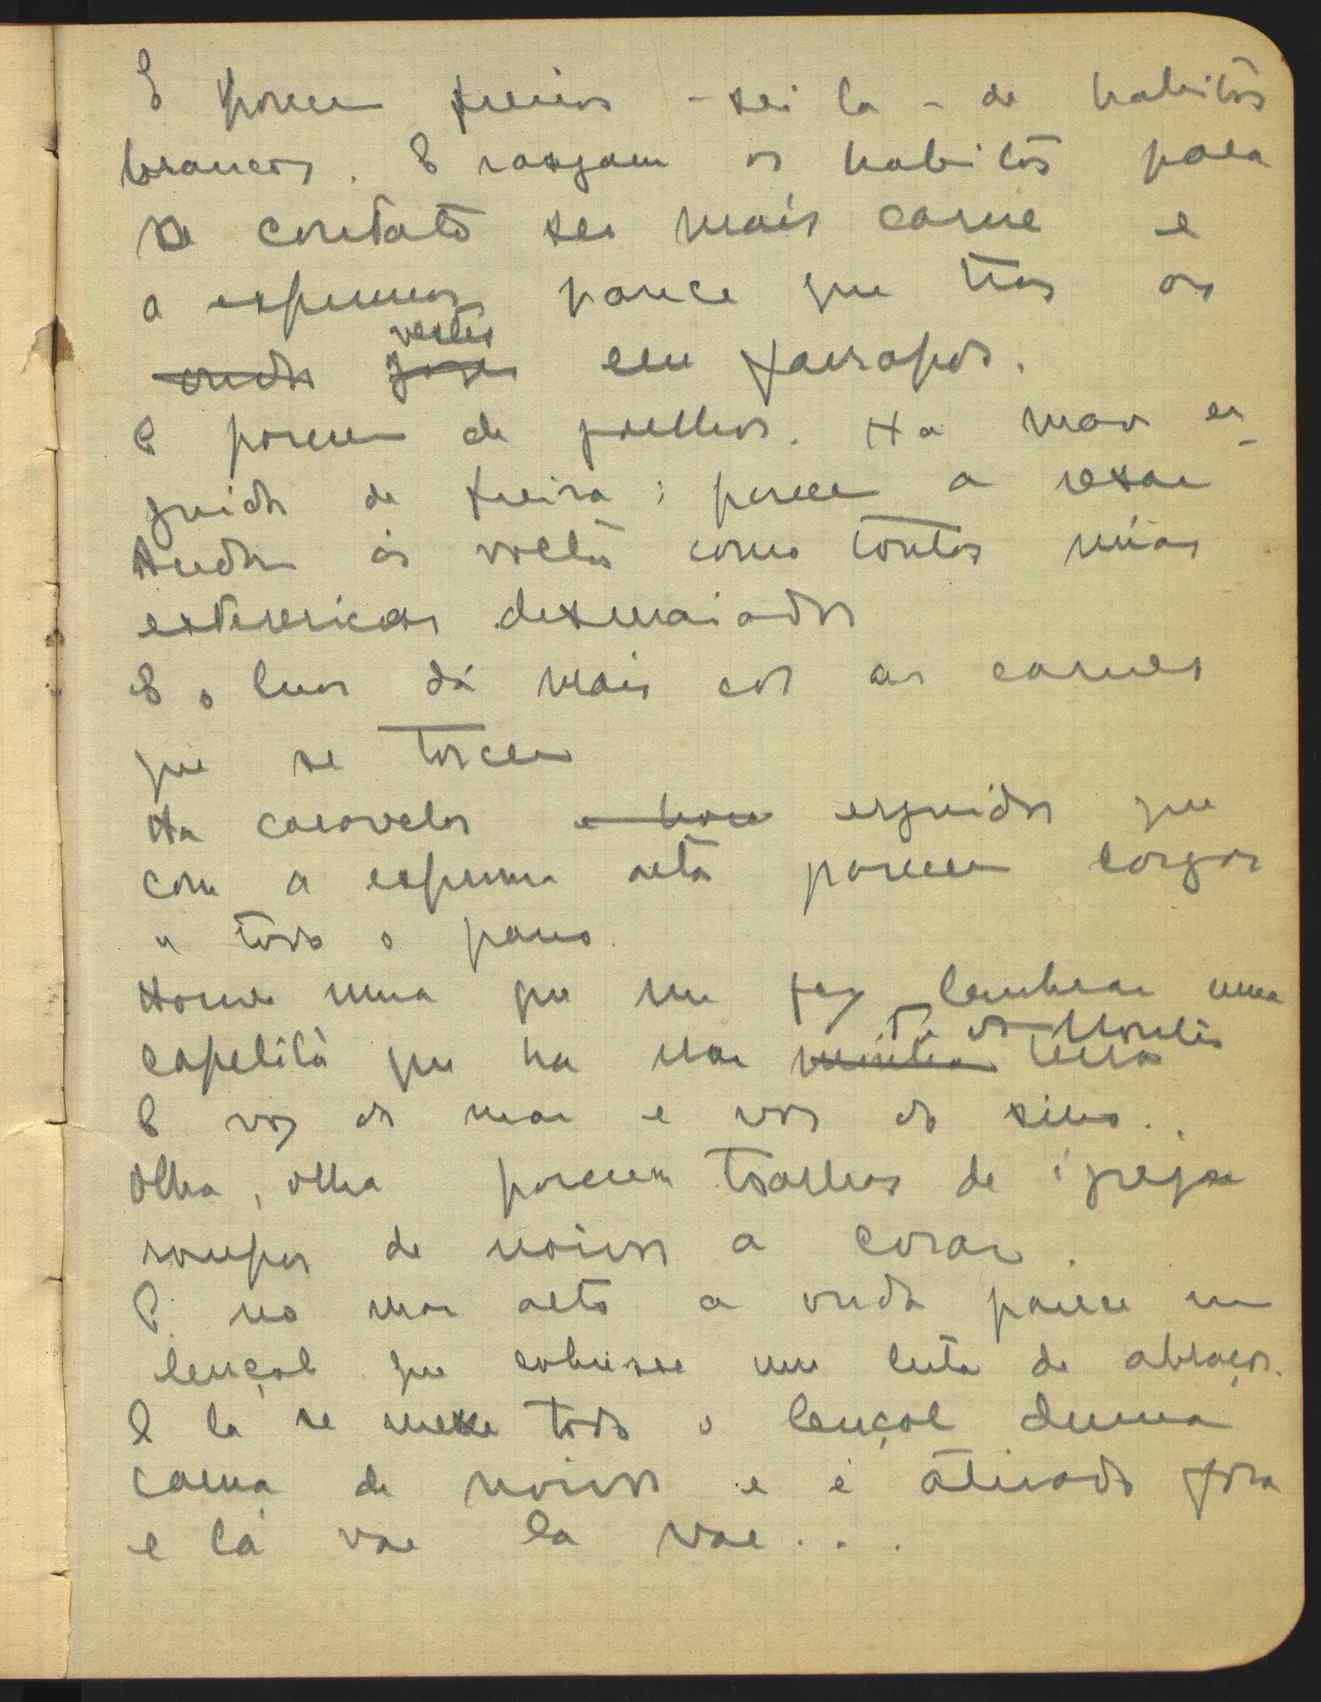 E parecem freiras – sei la – de habitos
brancos. E rasgam os habitos para
o contato ser mais carne e
a espuma parece que tras as
vestes em farrapos.
E parecem de joelhos. Ha mar er-
guido de freira: parecem a resar
Andam ás voltas como tontas umas
estericas desmaiadas
E o luar dá mais cor as carnes
que se torcem
Ha caravelas erguidas que
com a espuma alta parecem largar
a todo o pano.
Houve uma que me fez lembrar uma
capelita que ha na terra
E voz do mar e voz do sino..
Olha, olha parecem toalhas de igreja
roupas de noivas a corar.
E no mar alto a onda parece um
lençol que cobrisse uma luta de abraços.
E la se mexe todo o lençol duma
cama de noivos e é atirado fora
e lá vae la vae...